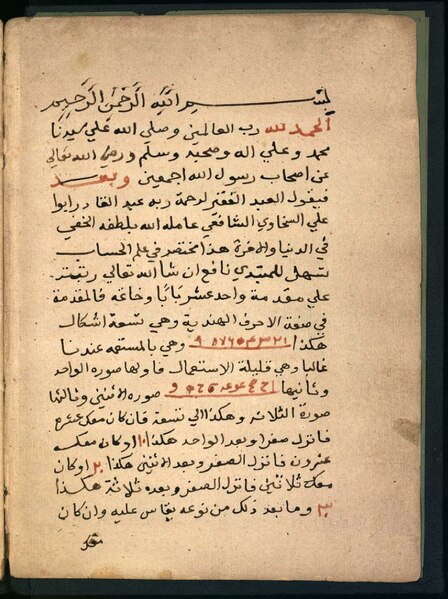 بسم الله الرحمن الرحيم
الحمد لله رب العالمين وصلي الله علي سيدنا
محمد وعلي اله وصحبه وسلم ورضي الله تعالي
عن اصحاب رسول الله اجمعين وبعد
فيقول العبد الفقير لرحمة ربه عبد القادر ابوا
علي السخاوي الشافعي عامله الله بلطفه الخفي
في الدنيا والاخرة هذا مختصر في علم الحساب
سهل للمبتدي نافع ان شا الله تعالي رتبته
علي مقدمة واحد عشر بابا وخاتمه فالمقدمة
في صفة الاحرف الهندية وهي تسعة اشكال
هكذا ١ ٢ ٣ ٤ ٥ ٦ ٧ ٨ ٩ وهي بالمستعمله عندنا
غالبا وهي قليلة الاستعمال فاولها صوره الواحد
وثانيها صوره الاثنين وثالثها
صورة الثلاثه وهكذا الي تسعة فان كان معك عشرة
فانزل صفرا وبعد الواحد هكذا ١٠ او كان معك
عشرون فانزل الصفر وبعد الاثنين هكذا ٢٠ او كان
معك ثلاثين فانزل الصفر وبعده ثلاثة هكذا
٣٠ وما بعد ذلك من نوعه يقاس عليه وان كان
معك